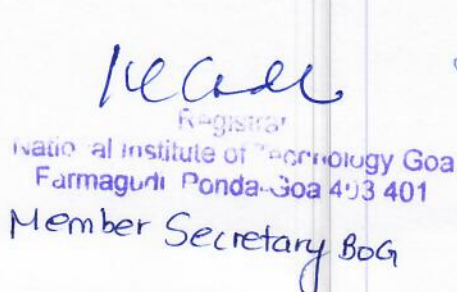 Registrar
National Institute of Technology Goa
Farmagudi Ponda-Goa 403 401
Member Secretary BoG